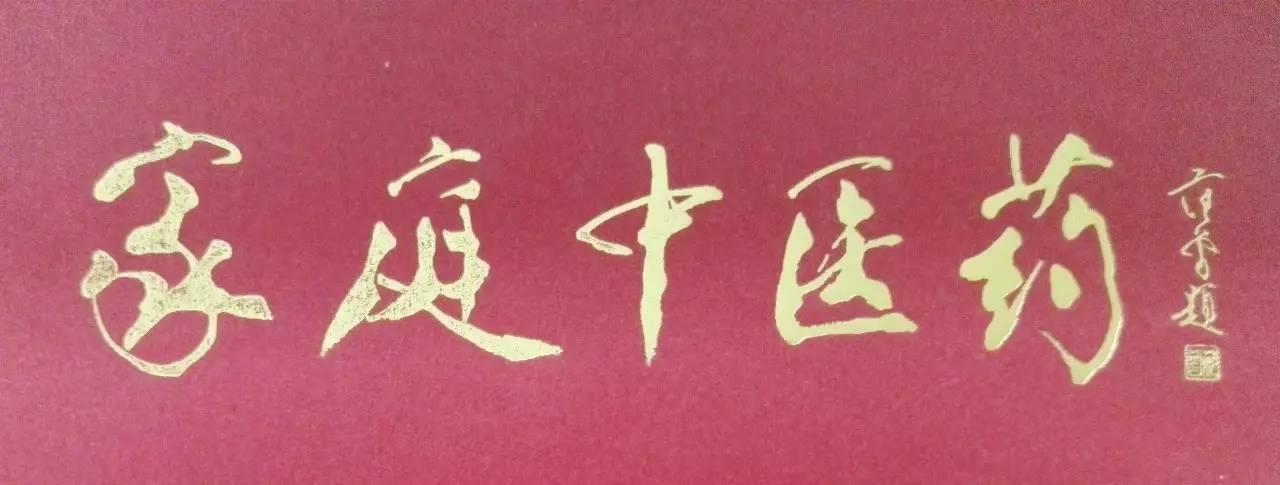 家庭中医药
题